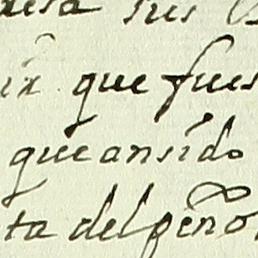 sus
que fues
que an sido
ta del señor